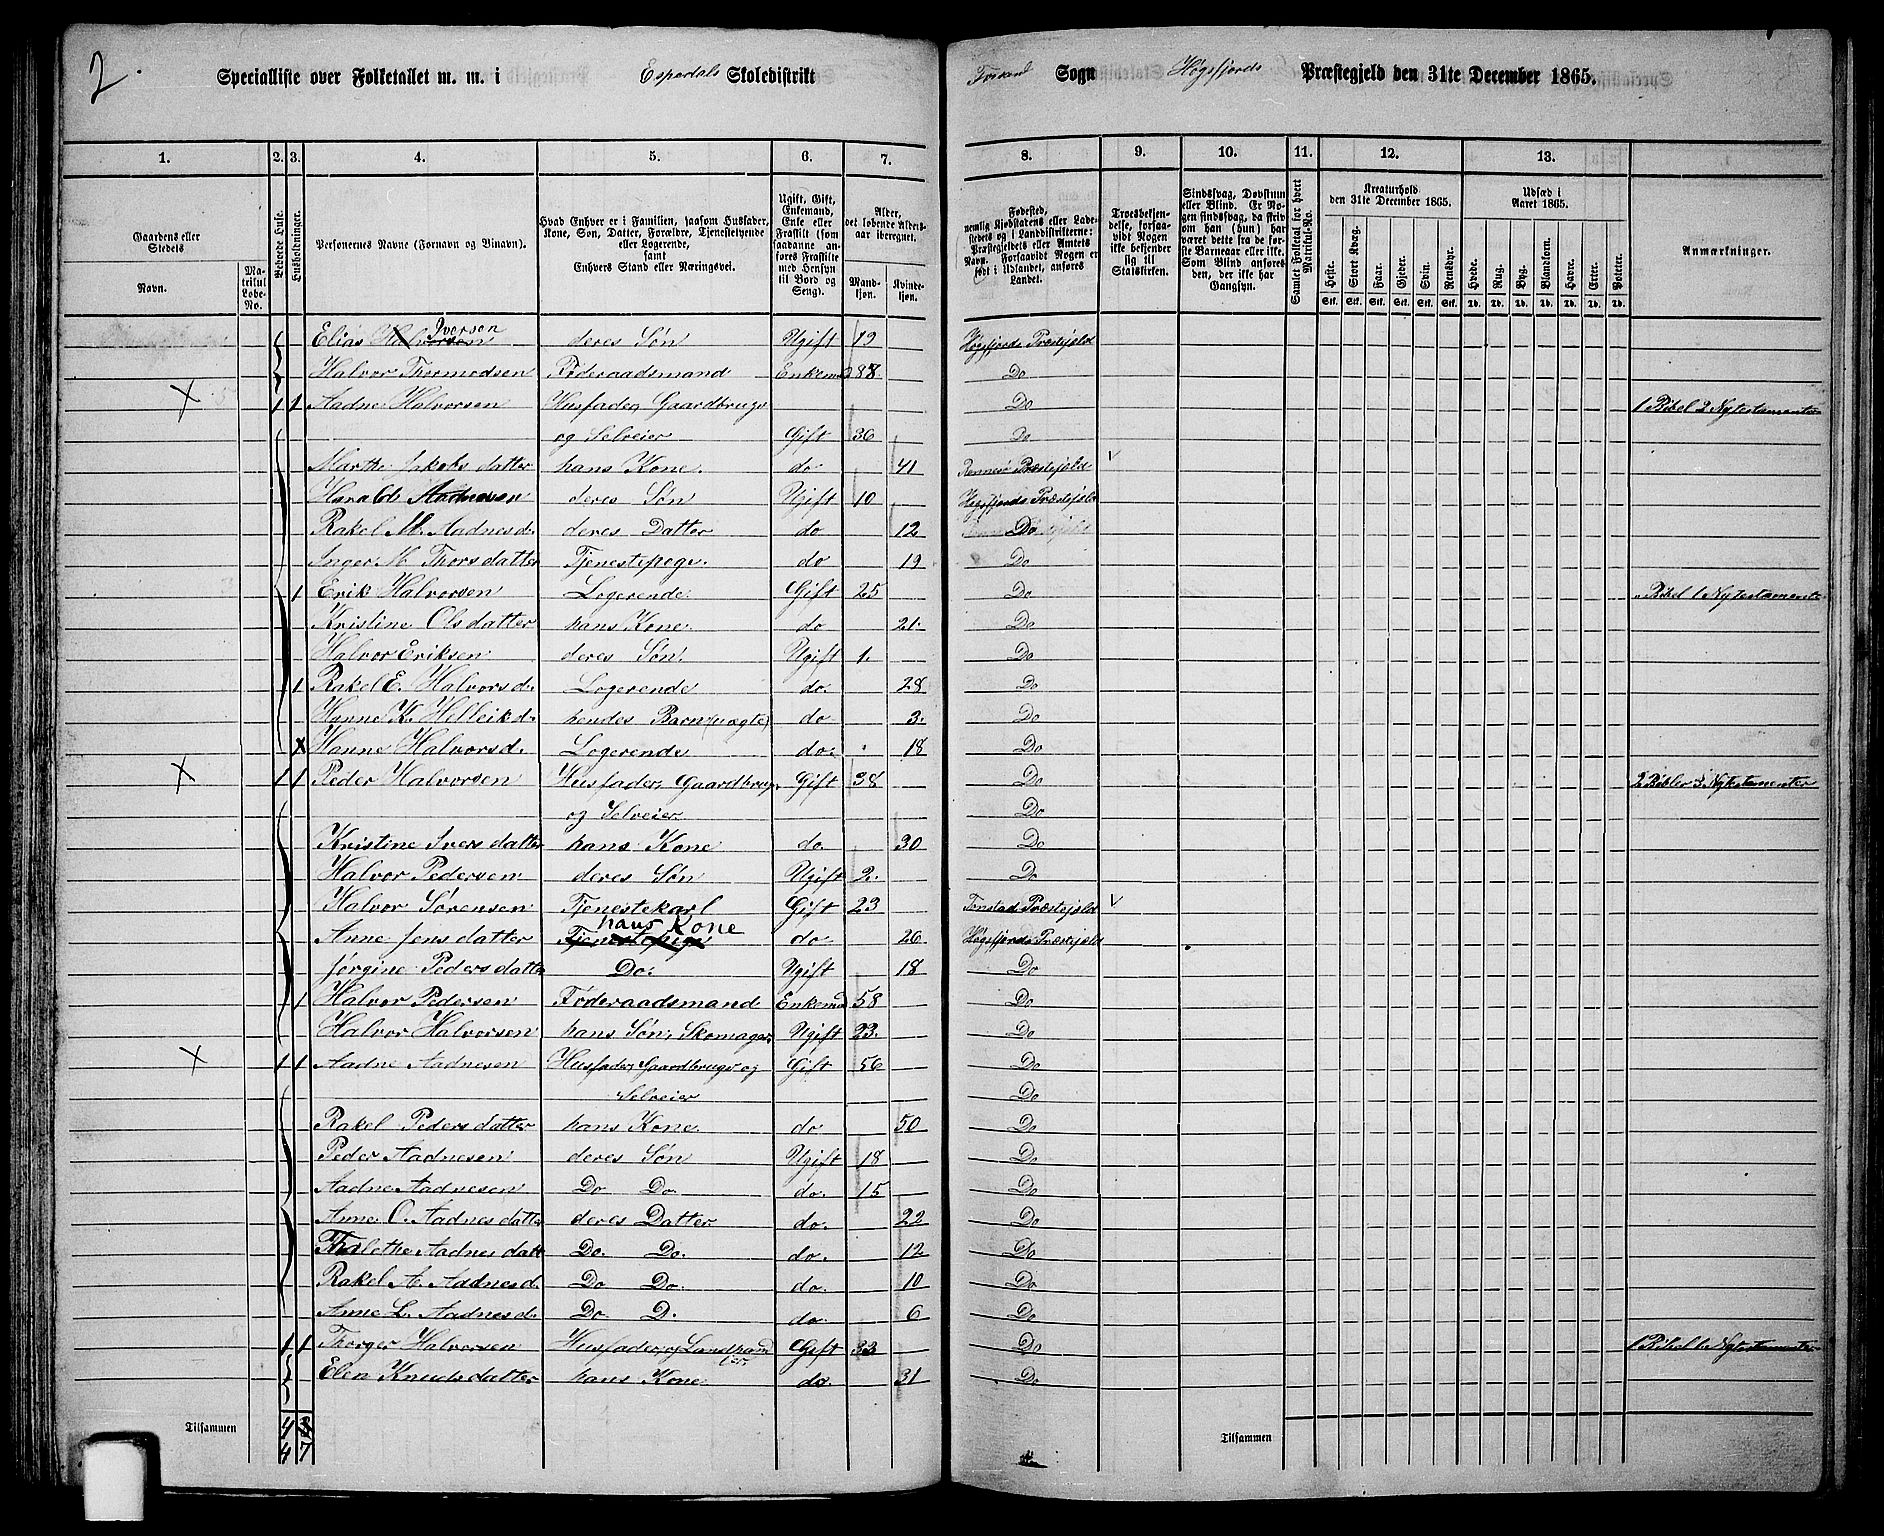 2.
Specialliste over Folketallet m. m. i Espedals Skoledistrikt
Forsand Sogn Høgsfjords Præstegjeld den 31te December 1865.
1. 2. 3. 4. 5. 6. 7. 8. 9. 10. 11. 12. 13.
Gaardens eller Stedets
Navn.
Matrikul Løbe-No.
Beboede Huse.
Husholdninger.
Personernes Navne (Fornavn og Binavn).
Hvad Enhver er i Familien, saasom Husfader, Kone, Søn, Datter, Forældre, Tjenestetyende eller Logerende, samt Enhvers Stand eller Næringsvei.
Ugift, Gift, Enkemand, Enke eller Fraskilt (som saadanne anføres Fraskilte med Hensyn til Bord og Seng).
Alder, det løbende Alders- aar iberegnet.
Mandkjøn.
Kvindekjøn.
Fødested, nemlig Kjøbstadens eller Ladestedets og i Landdistrikterne: Præstegjeldets eller Amtets Navn. Forsaavidt Nogen er født i Udlandet, anføres Landet.
Troesbekjendelse, forsaavidt Nogen ikke bekjender sig til Statskirken.
Sindssvag, Døvstum eller Blind. Er Nogen sindssvag, da skriv om han (hun) har været dette fra de første Barneaar eller ikke. Som Blind anføres den, der ikke har Gangsyn.
Samlet Folketal for hvert Matrikul-No.
Kreaturhold den 31te December 1865.
Heste. Stort Kvæg. Faar. Gjeder. Svin. Rensdyr.
Stk. Stk. Stk. Stk. Stk. Stk.
Udsæd i Aaret 1865.
Hvede. Rug. Byg. Blandkorn. Havre. Erter. Poteter.
Td. Td. Td. Td. Td. Td. Td.
Anmærkninger.
Elias Halvorsen Iversen deres Søn Ugift 19 Høgsfjords Præstejeld
Halvor Thormodsen Føderaadsmand Enkemd 88 Do
X 1 1 Aadne Halvorsen Husfader, Gaardbruger Do 1 Bibel 2 Nytestamenter
og Selveier Gift 36 Do
Marthe Jakobsdatter hans Kone. do 41 Rennesø Præstejeld V
Harald Aadnesen deres Søn Ugift 10 Høgsfjords Præstejeld
Rakel M. Aadnesd. deres Datter do 12 Do
Inger M Thorsdatter Tjenestepige. do 19 Do
1 Erik Halvorsen Logerende. Gift 25 Do Bibel 1 Nytestamente
Kristine Olsdatter hans Kone. do 21. Do
Halvor Eriksen deres Søn. Ugift 1. Do
1 Rakel E. Halvorsd. Logerende do. 28 Do
Hanne K. Helleikd. hendes Barn (uægte) do 3. Do
X Hanne Halvorsd. Logerende do. 18 Do
X 1 1 Peder Halvorsen Husfader, Gaardbruger Gift 38 Do 2 Bibler 3 Nytestamenter
og Selveier Do
Kristine Iversdatter hans Kone do. 30 Do
Halvor Pedersen deres Søn Ugift 2. Do
Halvor Sørensen Tjenestekarl Gift 23 Fonstad Præstejeld V
Anne Jensdatter Tjenestepige hans Kone do. 26 Høgsfjords Præstejeld
Jørgine Pedersdatter Do. Ugift 18 Do
1 Halvor Pedersen Føderaadsmand Enkemd 58 Do
Halvor Halvorsen hans Søn, Skomager Ugift 23. Do
X 1 1 Aadne Aadnesen Husfader, Gaardbruger og Gift 56 Do
Selveier Do
Rakel Pedersdatter hans Kone. do 50 Do
Peder Aadnesen deres Søn Ugift 18 Do
Aadne Aadnesen Do Do do. 15 Do
Anne O. Aadnesdatter deres Datter do. 22 Do
Aadnesdatt Do. Do. do. 12 Do
Rakel A. Aadnesd. Do Do. do. 10 Do
Anne L. Aadnesd. Do D. do. 6 Do
1 1 Thorger Halvorsen Husfader, og Gift 33 Do 1 Bibel 1 Nytestamenter
Elen Knudsdatter hans Kone. do. 31 Do
Tilsammen 4
4 7
Tilsammen